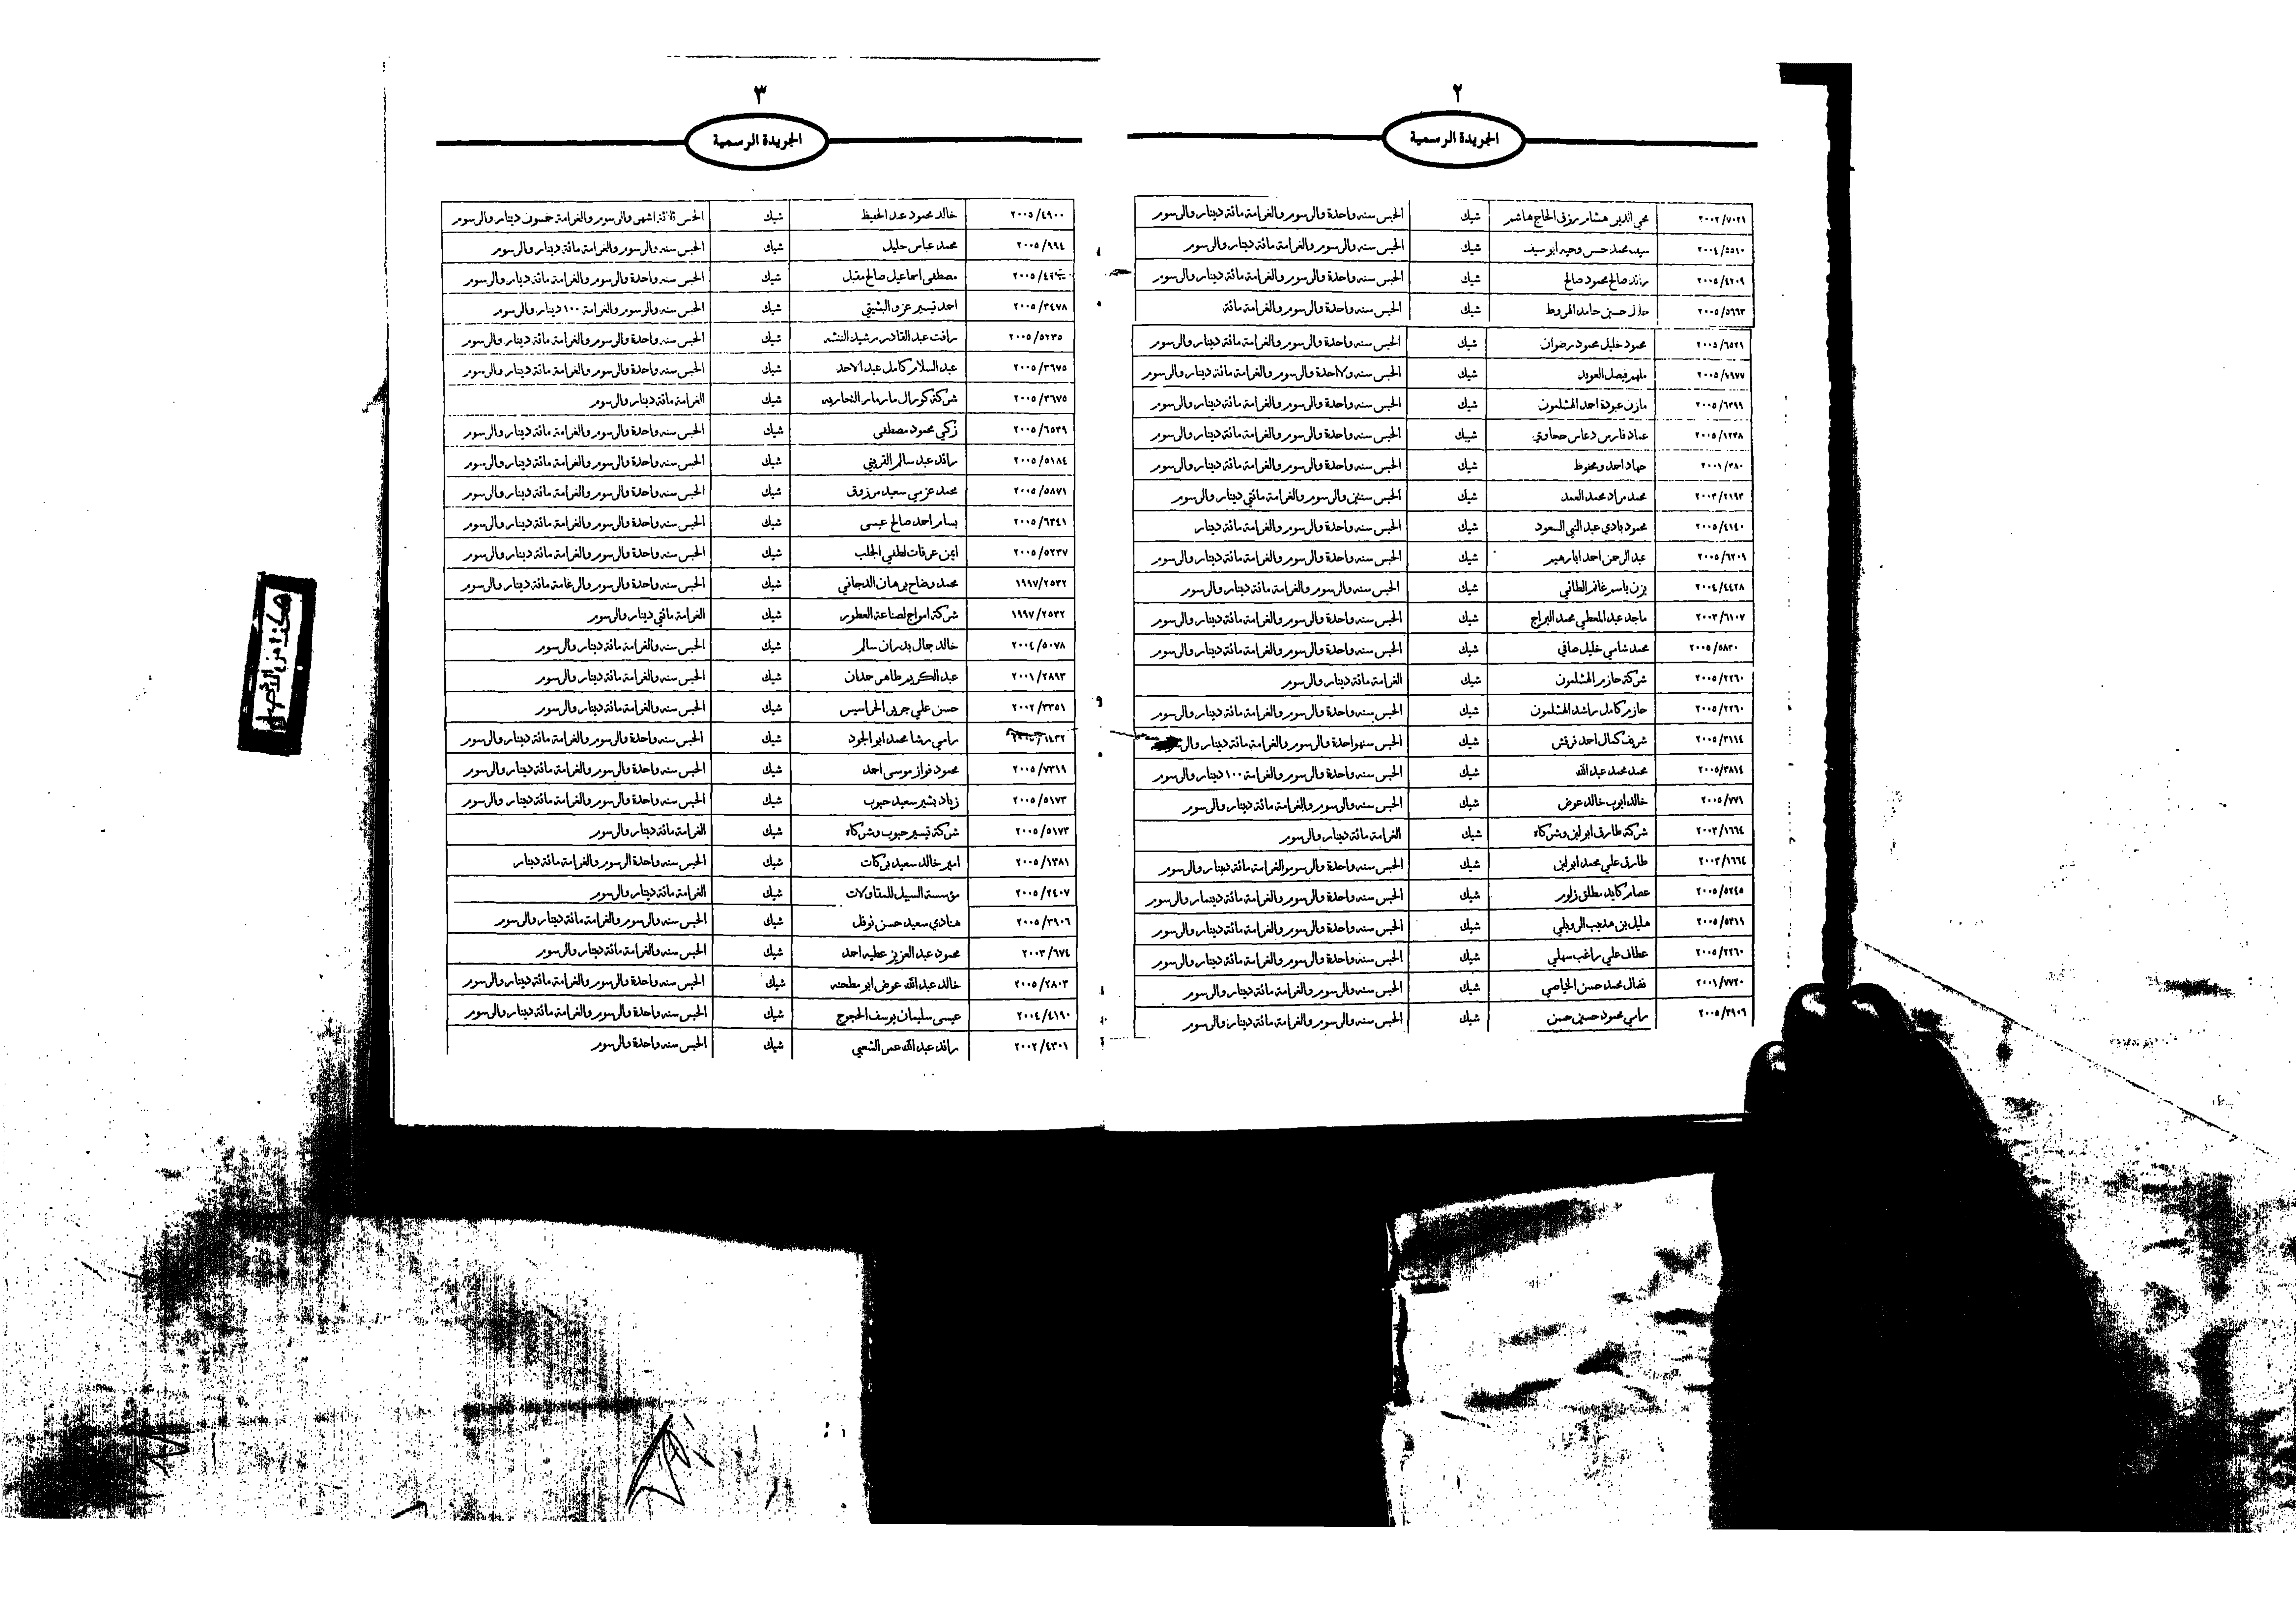 ٢
الجريدة الرسمية
٢٠٠٢/٧٠٢١ محي الدين هشام رزق الحاج هاشم شيك الحبس سنه واحدة والرسوم والغرامة مائة دينار والرسوم
٢٠٠٤/٥٥١٠ سيف محمد حسن وحيد ابو سيف شيك الحبس سنه والرسوم والغرامة مائة دينار والرسوم
٢٠٠٥/٤٢٠٩ رائد صالح محمود صالح شيك الحبس سنه واحدة والرسوم والغرامة مائة دينار والرسوم
٢٠٠٥/٥٦٦٣ حسين حامد الهروط شيك الحبس سنه واحدة والرسوم والغرامة مائة
٢٠٠٥/٦٥٢١ محمود خليل محمود رضوان شيك الحبس سنه واحدة والرسوم والغرامة مائة دينار والرسوم
٢٠٠٥/٢٩٧٧ ملهم فيصل العويد شيك الحبس سنه ولااحدة والرسوم والغرامة مائة دينار والرسوم
٢٠٠٥/٦٢٩٩ مازن عبودة احمد الهشلمون شيك الحبس سنه واحدة والرسوم والغرامة مائة دينار والرسوم
٢٠٠٥/١٢٣٨ عماد فارس دعاس ححاوي شيبك الحبس سنه واحدة والرسوم والغرامة مائة دينار والرسوم
٢٠٠١/٣٨٠ جهاد احمد ومحفوظ شيك الحبس سنه واحدة والرسوم والغرامة مائة دينار والرسوم
٢٠٠٣/٢١٩٣ محمد مراد محمد العمد شيك الحبس سنتين والرسوم والغرامة مائتي دينار والرسوم
٢٠٠٥/٤١٤٠ محمود بادي عبد النبي السعود شيك الحبس سنه واحدة والرسوم والغرامة مائة دينار
٢٠٠٥/٦٢٠٩ عبد الرحمن احمد ابارهيم شيك الحبس سنه واحدة والرسوم والغرامة مائة دينار والرسوم
٢٠٠٤/٤٤٢٨ يزن ياسر غانم الطائي شيك الحبس سنه والرسوم والغرامة مائة دينار والرسوم
٢٠٠٣/٦١٠٧ ماجد عبد المعطي محمد البراج شيك الحبس سنه واحدة والرسوم والغرامة مائة دينار والرسوم
٢٠٠٥/٥٨٣٠ محمد شامي خليل صافي شيك الحبس سنه واحدة والرسوم والغرامة مائة دينار والرسوم
٢٠٠٥/٢٢٦٠ شركة حازم الهشلمون شيك الغرامة مائة دينار والرسوم
٢٠٠٥/٢٢٦٠ حازم كامل راشد الهشلمون شيك الحبس سنه واحدة والرسوم والغرامة مائة دينار والرسوم
٢٠٠٥/٣١١٤ شريف كمال احمد قرقش شيك الحبس سنهواحدة والرسوم والغرامة مائة دينار
٢٠٠٥/٣٨١٤ محمد محمد عبد الله شيك الحبس سنه واحدة والرسوم والغرامة ١٠٠ دينار والرسوم
٢٠٠٥/٧٧١ خالد ايوب خالد عوض شيك الحبس سنه والرسوم والغرامة مائة دينار والرسوم
٢٠٠٣/١٦٦٤ شركة طارق ابو لبن وشركاه شيك الغرامة مائة دينار والرسوم
٢٠٠٣/١٦٦٤ طارق علي محمد ابو لبن شيك الحبس سنه واحدة والرسوموالغرامة مائة دينار والرسوم
٢٠٠٥/٥٢٤٥ عصام كايد مطلق زلوم شيك الحبس سنه واحدة والرسوم والغرامة مائة دينمار والرسوم
٢٠٠٥/٥٣١٩ هليل بن هديب الرويلي شيك الحبس سنه واحدة والرسوم والغرامة مائة دينار والرسوم
٢٠٠٥/٢٢٦٠ عطاف علي راغب سهلي شيك الحبس سنه واحدة والرسوم والغرامة مائة دينار والرسوم
٢٠٠١/٧٧٢٠ نضال محمد حسن الحياصي شيك الحبس سنه والرسوم والغرامة مائة دينار والرسوم
٢٠٠٥/٣٩٠٦ رامي محمود حسين حسن شيك الحبس سنه والرسوم والغرامة مائة دينار والرسوم
٣
الجريدة الرسمية
٢٠٠٥/٤٩٠٠ خالد محمود عبد الحفيظ شيك الحبس ثلاثة اشهر والرسوم والغرامة خمسون دينار والرسوم
٢٠٠٥/٩٩٤ محمد عباس خليل شيك الحبس سنه والرسوم والغرامة مائة دينار والرسوم
مصطفى اسماعيل صالح مقبل شيك الحبس سنه واحدة والرسوم والغرامة مائة دينار والرسوم
٢٠٠٥/٣٤٧٨ احمد تيسير عزو البشيتي شيك الحبس سنه والرسوم والغرامة ١٠٠ دينار والرسوم
٢٠٠٥/٥٢٣٥ رافت عبد القادر رشيد النتشه شيك الحبس سنه واحدة والرسوم والغرامة مائة دينار والرسوم
٢٠٠٥/٣٦٧٥ عبد السلام كامل عبد الاحد شيك الحبس سنه واحدة والرسوم والغرامة مائة دينار والرسوم
٢٠٠٥/٣٦٧٥ شركة كورال مارمار التجاريه شيك الغرامة مائة دينار والرسوم
٢٠٠٥/٦٥٣٩ زكي محمود مصطفى شيك الحبس سنه واحدة والرسوم والغرامة مائة دينار والرسوم
٢٠٠٥/٥١٨٤ رائد عبد سالم القريني شيك الحبس سنه واحدة والرسوم والغرامة مائة دينار والرسوم
٢٠٠٥/٥٨٧١ محمد عزمي سعيد مرزوق شيك الحبس سنه واحدة والرسوم والغرامة مائة دينار والرسوم
٢٠٠٥/٦٣٤١ بسام احمد صالح عيسى شيك الحبس سنه واحدة والرسوم والغرامة مائة دينار والرسوم
٢٠٠٥/٥٢٣٧ ايمن عرفات لطفي الجلب شيك الحبس سنه واحدة والرسوم والغرامة مائة دينار والرسوم
١٩٩٧/٢٥٣٢ محمد وضاح برهان الدجاني شيك الحبس سنه واحدة والرسوم والرغامة مائة دينار والرسوم
١٩٩٧/٢٥٣٢ شركة امواج لصناعة العطور شيك الغرامة مائتي دينار والرسوم
٢٠٠٤/٥٠٧٨ خالد جمال بدران سالم شيك الحبس سنه والغرامة مائة دينار والرسوم
٢٠٠١/٢٨٩٣ عبد الكريم طاهر حمدان شيك الحبس سنه والغرامة مائة دينار والرسوم
٢٠٠٢/٣٣٥١ حسن علي جرير الحراسيس شيك الحبس سنه والغرامة مائة دينار والرسوم
رامي رشا محمد ابو الجود شيك الحبس سنه واحدة والرسوم والغرامة مائة دينار والرسوم
٢٠٠٥/٧٣١٩ محمود فواز موسى احمد شيك الحبس سنه واحدة والرسوم والغرامة مائة دينار والرسوم
٢٠٠٥/٥١٧٣ زياد بشير سعيد حبوب شيك الحبس سنه واحدة والرسوم والغرامة مائة دينار والرسوم
٢٠٠٥/٥١٧٣ شركة تيسير حبوب وشركاه شيك الغرامة مائة دينار والرسوم
٢٠٠٥/١٣٨١ امير خالد سعيد بركات شيك الحبس سنه واحدة الرسوم والغرامة مائة دينار
٢٠٠٥/٢٤٠٧ مؤسسة السبيل للمقاولات شيك الغرامة مائة دينار والرسوم
٢٠٠٥/٣٩٠٦ هنادي سعيد حسن نوفل شيك الحبس سنه والرسوم والغرامة مائة دينار والرسوم
٢٠٠٣/٦٧٤ محمود عبد العزيز عطيه احمد شيك الحبس سنه والغرامة مائة دينار والرسوم
٢٠٠٥/٢٨٠٣ خالد عبد الله عوض ابو مطحنه شيك الحبس سنه واحدة والرسوم والغرامة مائة دينار والرسوم
٢٠٠٤/٤١٩٠ عيسى سليمان يوسف الحجوج شيك الحبس سنه واحدة والرسوم والغرامة مائة دينار والرسوم
٢٠٠٢/٤٣٠١ رائد عبد الله عمر الشعبي شيك الحبس سنه واحدة والرسوم
هكذا من الأصل